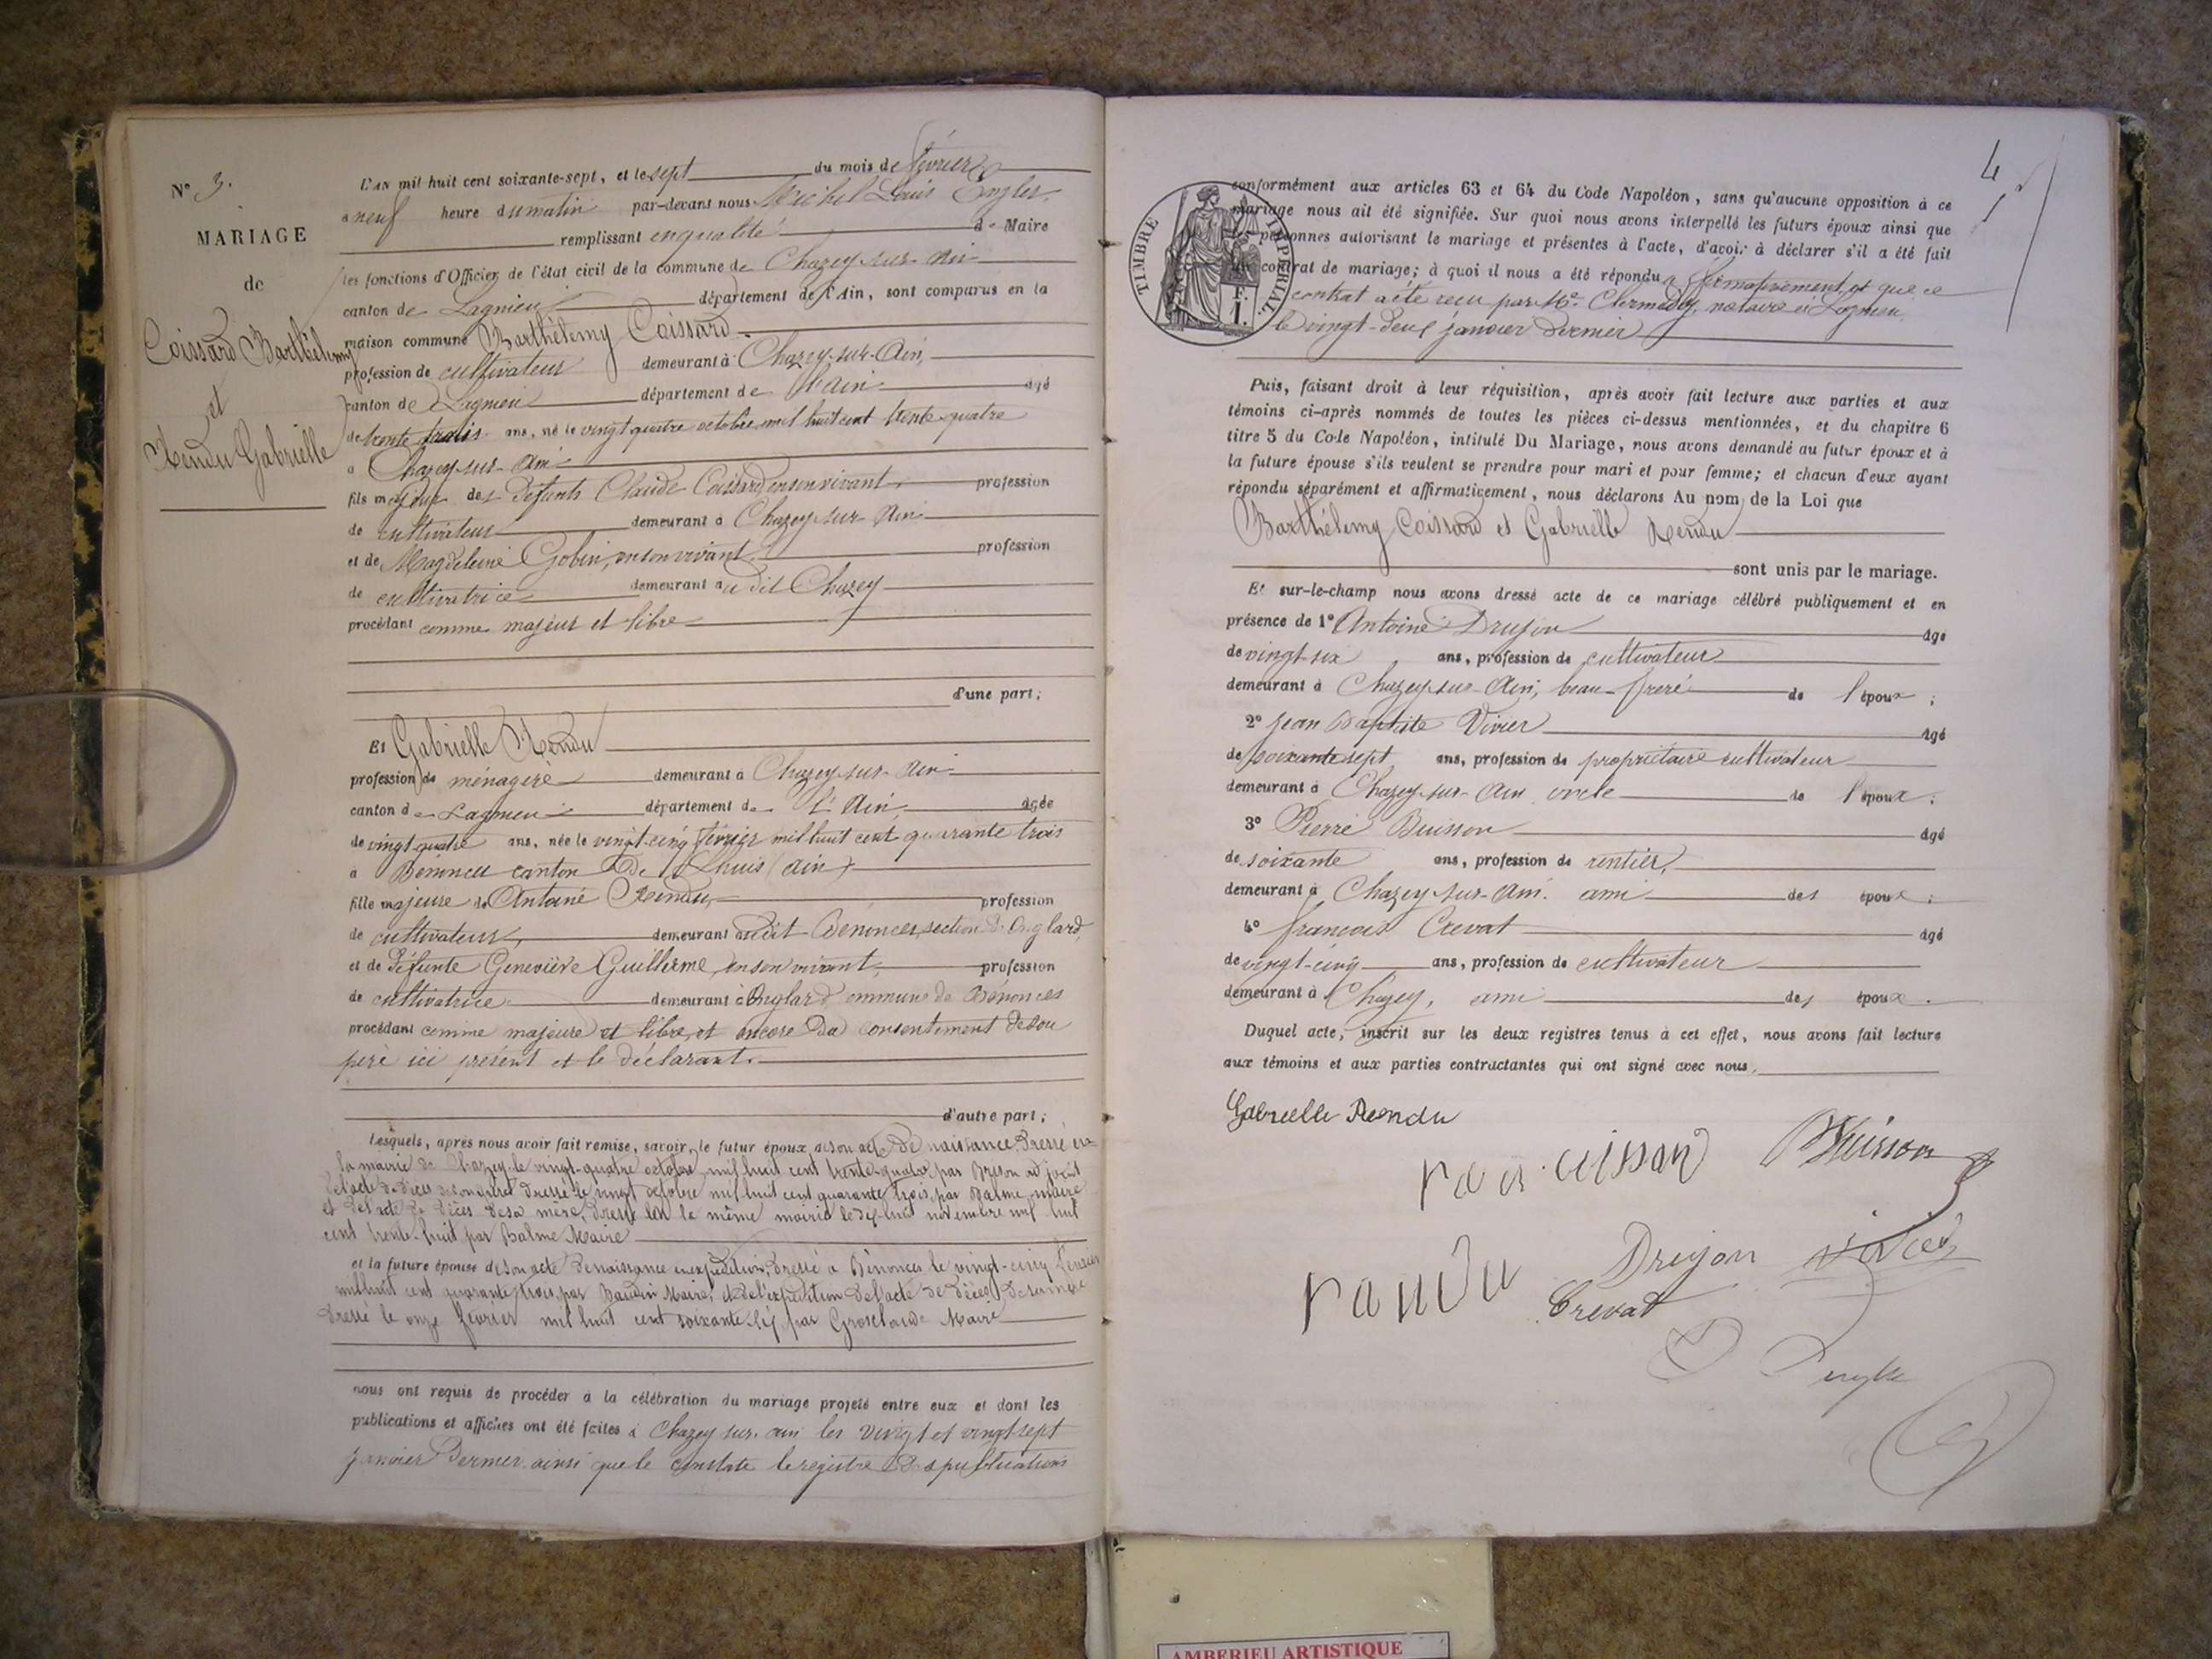 N° 3.
MARIAGE
de
Coissard Barthélemy
et
Rendu Gabrielle
L'AN mil huit cent soixante-sept, et le sept du mois de février
à neuf heure du matin par-devant nous Michel Louis
remplissant en qualité de Maire
les fonctions d'Officier de l'état civil de la commune de Chazey-sur-Ain
canton de Lagnieu département de l'Ain, sont comparus en la
maison commune Barthélemy Coissard
profession de cultivateur demeurant à Chazey-sur-Ain,
canton de Lagnieu département de l'ain âgé
de trente trois ans, né le vingt quatre octobre mil huit cent trente quatre
à Chazey-sur-Ain
fils majeur des défunts Claude Coissard en son vivant profession
de cultivateur demeurant à Chazey-sur-Ain
et de Magdeleine Gobin, en son vivant profession
de cultivatrice demeurant au dit Chazey
procédant comme majeur et libre
d'une part;
Et Gabrielle Rendu
profession de ménagère demeurant à Chazey-sur-Ain
canton de Lagnieu département de l'Ain, âgée
de vingt quatre ans, née le vingt-cinq février mil huit cent quarante trois
à Bénonces canton de Lhuis (ain)
fille majeure de Antoine Rendu, profession
de cultivateur, demeurant audit Bénonces, section d'Onglard,
et de défunte Geneviève Guillerme, en son vivant, profession
de cultivatrice demeurant à Onglard commune de Bénonces
procédant comme majeure et libre, et encore du consentement de son
père ici présent et le déclarant.
d'autre part;
Lesquels, après nous avoir fait remise, savoir, le futur époux de son acte de naissance dressé en
la mairie de Chazey le vingt-quatre octobre mil huit cent trente-quatre par Brison adjoint
de l'acte de décès de son père dressé le vingt octobre mil huit cent quarante trois, par Balme, maire
et de l'acte de décès de sa mère, dressé en la même mairie le dix-huit novembre mil huit
cent trente-huit par Balme Maire
et la future épouse de son acte de naissance en expédition, dressé à Bénonces le vingt-cinq février
mil huit cent quarante trois, par Baudin Maire, et de l'expédition de l'acte de décès de sa mère
dressé le onze février mil huit cent soixante-six par Grosclaude Maire
nous ont requis de procéder à la célébration du mariage projeté entre eux et dont les
publications et affiches ont été faites à Chazey sur ain les vingt et vingt sept
janvier dernier ainsi que le constate le registre des publications
4
TIMBRE IMPERIAL
F.
1.
conformément aux articles 63 et 64 du Code Napoléon, sans qu'aucune opposition à ce
mariage nous ait été signifiée. Sur quoi nous avons interpellé les futurs époux ainsi que
les personnes autorisant le mariage et présentes à l'acte, d'avoir à déclarer s'il a été fait
un contrat de mariage; à quoi il nous a été répondu affirmativement et que ce
contrat a été reçu par Me. notaire à Lagnieu
le vingt-deux janvier dernier
Puis, faisant droit à leur réquisition, après avoir fait lecture aux parties et aux
témoins ci-après nommés de toutes les pièces ci-dessus mentionnées, et du chapitre 6
titre 5 du Code Napoléon, intitulé Du Mariage, nous avons demandé au futur époux et à
la future épouse s'ils veulent se prendre pour mari et pour femme; et chacun d'eux ayant
répondu séparément et affirmativement, nous déclarons Au nom de la Loi que
Barthélemy Coissard et Gabrielle Rendu
sont unis par le mariage.
Et sur-le-champ nous avons dressé acte de ce mariage célébré publiquement et en
présence de 1° Antoine Drujon âgé
de vingt-six ans, profession de cultivateur
demeurant à Chazey-sur-Ain, beau-frère de l'époux;
2° Jean Baptiste Vivier âgé
de soixante sept ans, profession de propriétaire cultivateur
demeurant à Chazey-sur-Ain oncle de l'époux;
3° Pierre Buisson âgé
de soixante ans, profession de rentier,
demeurant à Chazey-sur-Ain. ami des époux;
4° françois Crevat âgé
de vingt-cinq ans, profession de cultivateur
demeurant à Chazey, ami des époux.
Duquel acte, inscrit sur les deux registres tenus à cet effet, nous avons fait lecture
aux témoins et aux parties contractantes qui ont signé avec nous.
Gabrielle Rendu
Buisson
Drujon
Crevat
AMBERIEU ARTISTIQUE